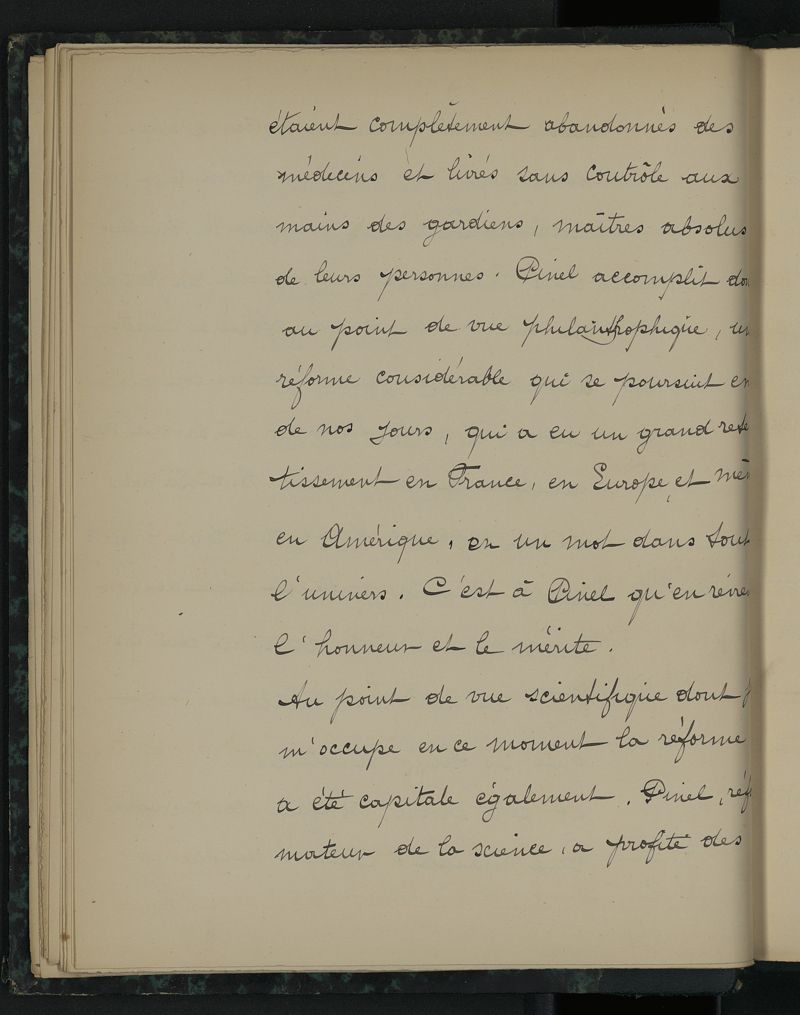 étaient complètement abandonnés des
médecins et livrés sans contrôle aux
mains des gardiens, maîtres absolus
de leurs personnes. Pinel accomplit don
au point de vue philanthrophique, un
réforme considérable qui se poursuit en
de nos jours, qui a eu un grand rete
tissement en France, en Europe et mêm
en Amérique, en un mot dans tout
l'univers. C'est à Pinel qu'en revie
l'honneur et le mérite.
Au point de vue scientifique dont
m'occupe en ce moment la réforme
a été capitale également. Pinel, réf
mateur de la science, a profité des